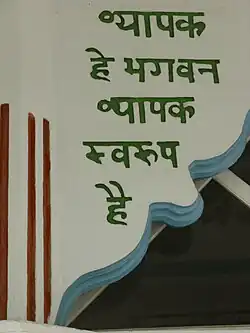 व्यापक
हे भगवन
व्यापक
स्वरुप
है